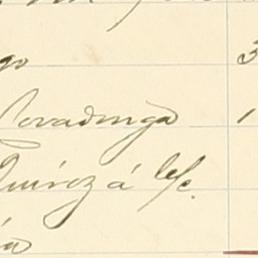 go 3
Covadonga 1
Quiroz á b/c.
ia